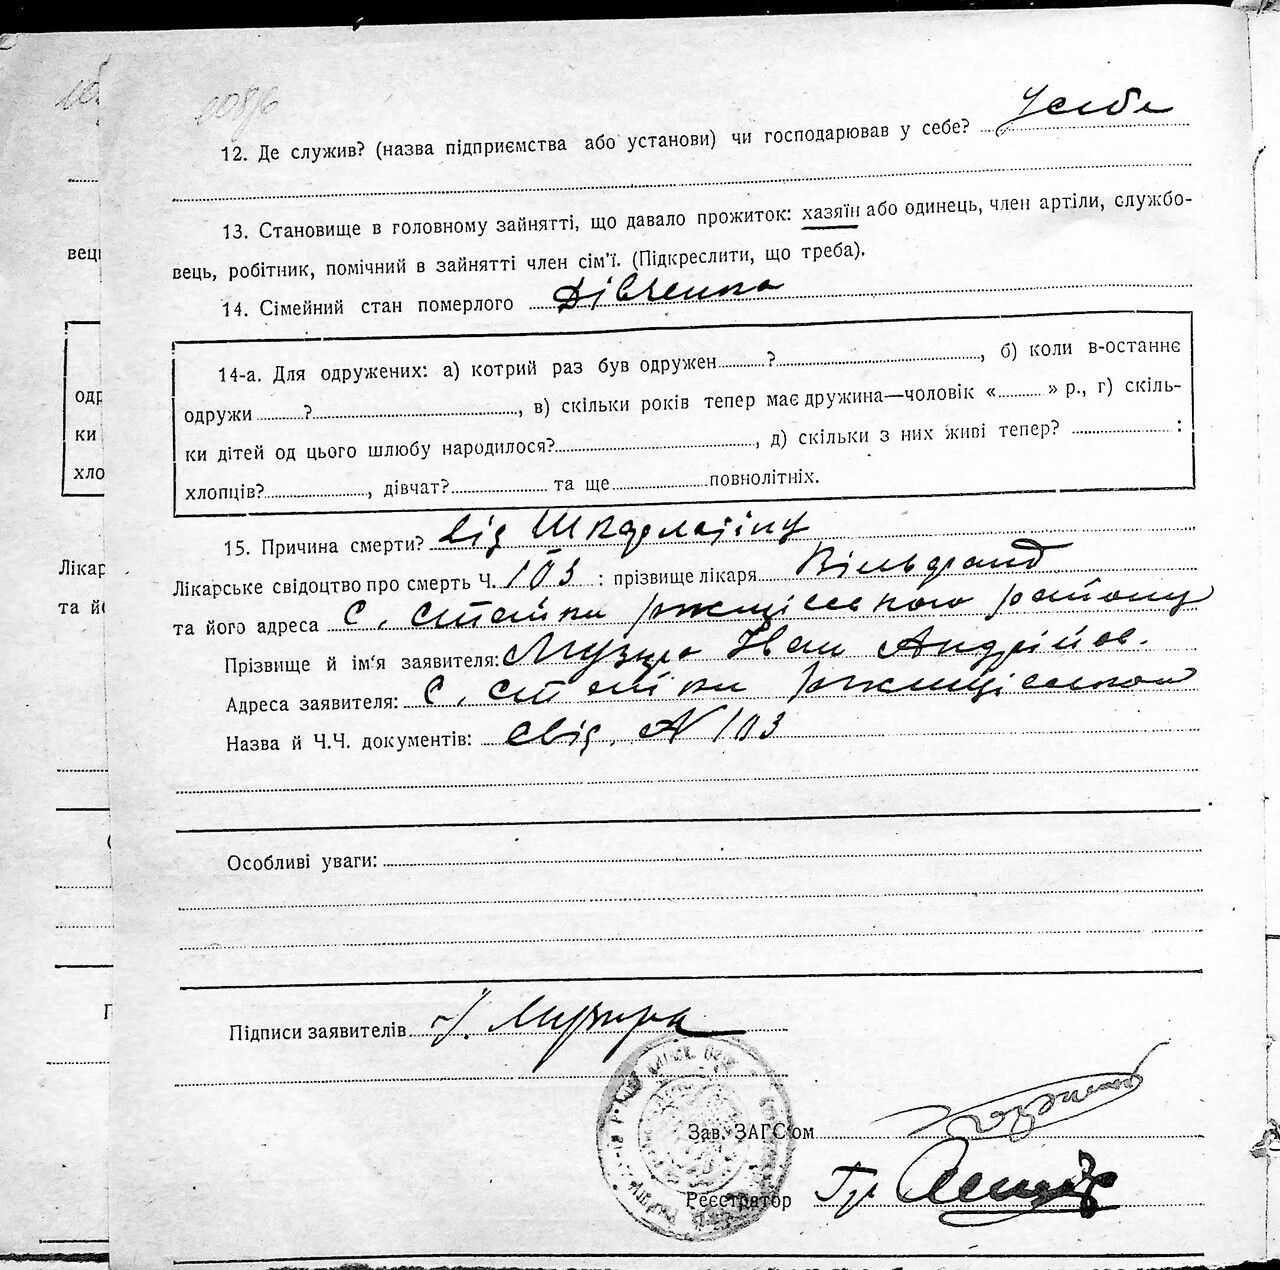 12. Де служив? (назва підприємства або установи) чи господарював у себе? У себе
13. Становище в головному зайнятті, що давало прожиток: хазяїн або одинець, член артіли, службо-
вець, робітник, помічний в зайнятті член сім'ї. (Підкреслити, що треба).
14. Сімейний стан померлого Дівченка
14-а. Для одружених: а) котрий раз був одружен ? , б) коли в-останнє
одружи ? , в) скільки років тепер має дружина—чоловік « » р., г) скіль-
ки дітей од цього шлюбу народилося? , д) скільки з них живі тепер? :
хлопців? , дівчат? та ще повнолітніх.
15. Причина смерти? Від Шкарлатіну
Лікарське свідоцтво про смерть Ч. 103 : прізвище лікаря
та його адреса С. Стайки ржищівського району
Прізвище й ім'я заявителя: Музира Іван Андрійов.
Адреса заявителя: С. Стайки ржищівського
Назва й Ч.Ч. документів: Свід. N 103
Особливі уваги:
Підписи заявителів Музира
Зав. ЗАГС'ом
Реєстратор
вець
одр
ки
хло
Лікар
та йо